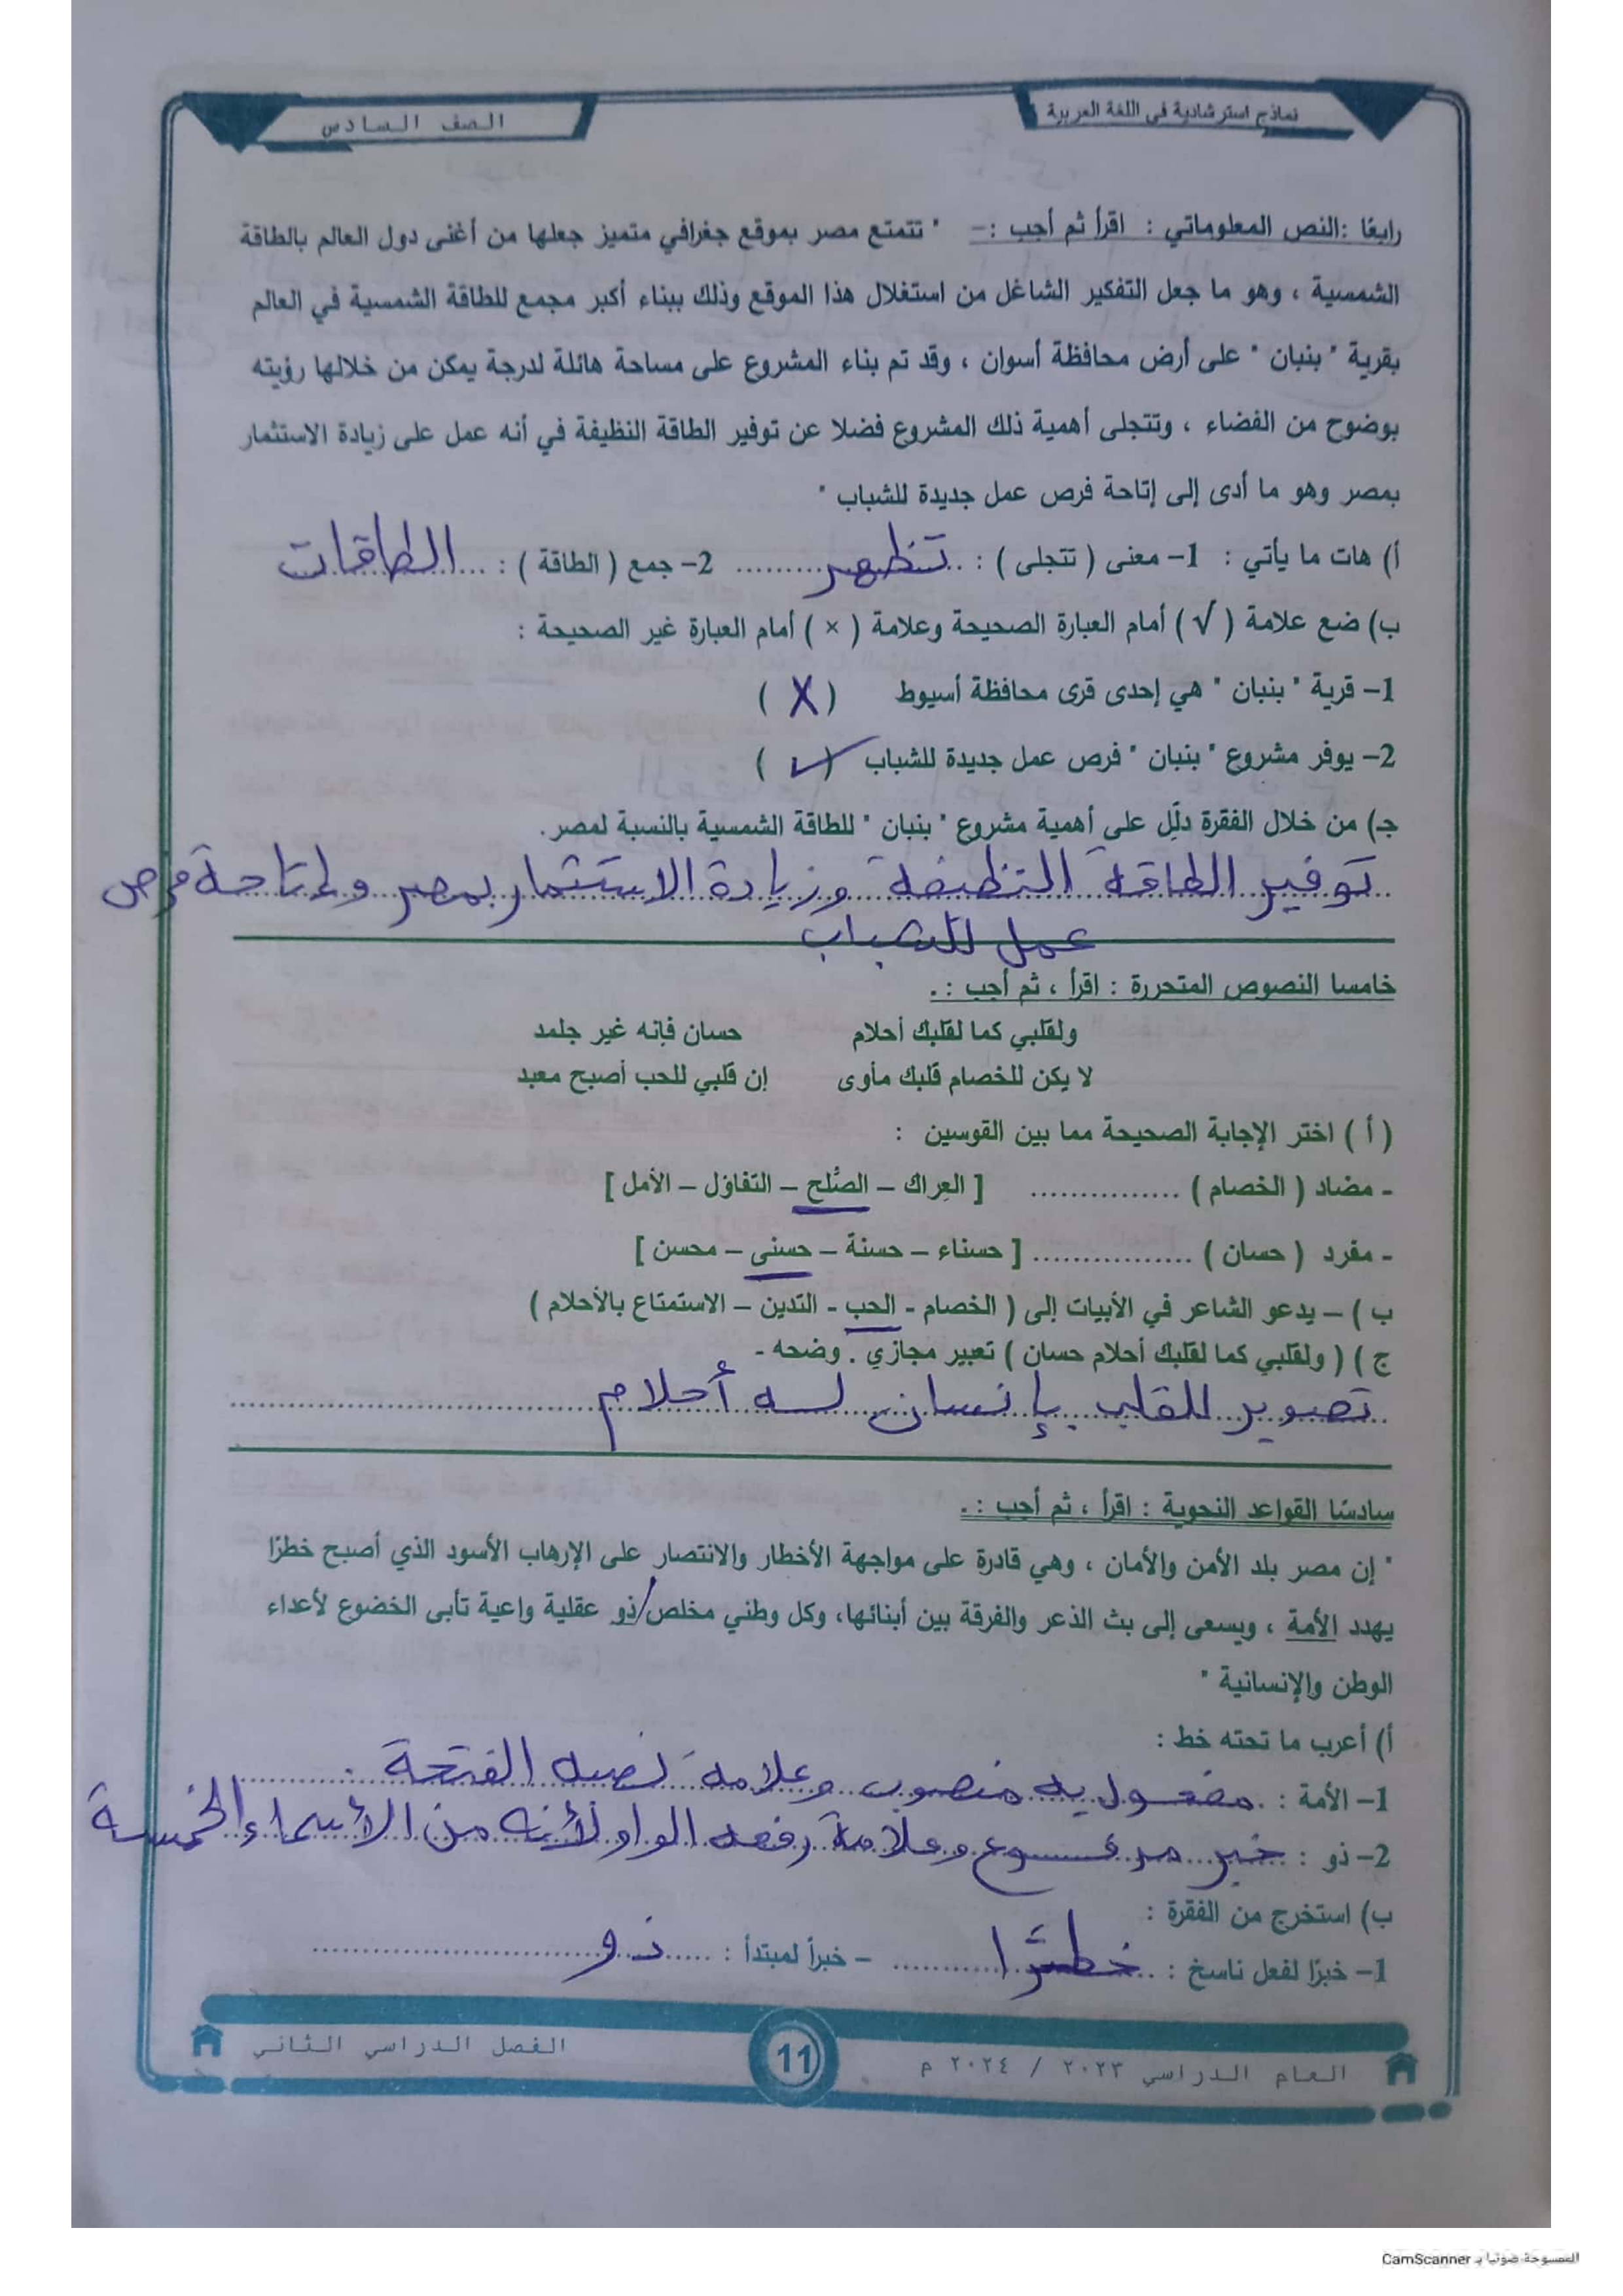 نماذج استرشادية في اللغة العربية
الصف السادس
رابعًا :النص المعلوماتي : اقرأ ثم أجب :- " تتمتع مصر بموقع جغرافي متميز جعلها من أغنى دول العالم بالطاقة
الشمسية ، وهو ما جعل التفكير الشاغل من استغلال هذا الموقع وذلك ببناء أكبر مجمع للطاقة الشمسية في العالم
بقرية " بنبان " على أرض محافظة أسوان ، وقد تم بناء المشروع على مساحة هائلة لدرجة يمكن من خلالها رؤيته
بوضوح من الفضاء ، وتتجلى أهمية ذلك المشروع فضلا عن توفير الطاقة النظيفة في أنه عمل على زيادة الاستثمار
بمصر وهو ما أدى إلى إتاحة فرص عمل جديدة للشباب "
أ) هات ما يأتي : 1- معنى ( تتجلى ) : تظهر 2- جمع ( الطاقة ) : الطاقات
ب) ضع علامة ( √ ) أمام العبارة الصحيحة وعلامة ( × ) أمام العبارة غير الصحيحة :
1- قرية " بنبان " هي إحدى قرى محافظة أسيوط ( X )
2- يوفر مشروع " بنبان " فرص عمل جديدة للشباب ( ✓ )
جـ) من خلال الفقرة دلِّل على أهمية مشروع " بنبان " للطاقة الشمسية بالنسبة لمصر.
توفير الطاقة النظيفة وزيادة الاستثمار بمصر وإتاحة فرص
عمل للشباب
خامسا النصوص المتحررة : اقرأ ، ثم أجب :.
ولقلبي كما لقلبك أحلام حسان فإنه غير جلمد
لا يكن للخصام قلبك مأوى إن قلبي للحب أصبح معبد
( أ ) اختر الإجابة الصحيحة مما بين القوسين :
- مضاد ( الخصام ) ............... [ العِراك – الصُّلح – التفاؤل – الأمل ]
- مفرد ( حسان ) ................ [ حسناء – حسنة – حسنى – محسن ]
ب ) – يدعو الشاعر في الأبيات إلى ( الخصام - الحب - التدين – الاستمتاع بالأحلام )
ج ) ( ولقلبي كما لقلبك أحلام حسان ) تعبير مجازي . وضحه -
تصوير للقلب بإنسان له أحلام
سادسًا القواعد النحوية : اقرأ ، ثم أجب :.
" إن مصر بلد الأمن والأمان ، وهي قادرة على مواجهة الأخطار والانتصار على الإرهاب الأسود الذي أصبح خطرًا
يهدد الأمة ، ويسعى إلى بث الذعر والفرقة بين أبنائها، وكل وطني مخلص/ذو عقلية واعية تأبى الخضوع لأعداء
الوطن والإنسانية "
أ) أعرب ما تحته خط :
1- الأمة : مفعول به منصوب وعلامة نصبه الفتحة .
2- ذو : خبر مرفوع وعلامة رفعه الواو لأنه من الأسماء الخمسة
ب) استخرج من الفقرة :
1- خبرًا لفعل ناسخ : خطرًا – خبراً لمبتدأ : ذو
العام الدراسي ٢٠٢٣ / ٢٠٢٤ م
11
الفصل الدراسي الثاني
الممسوحة ضوئيا بـ CamScanner